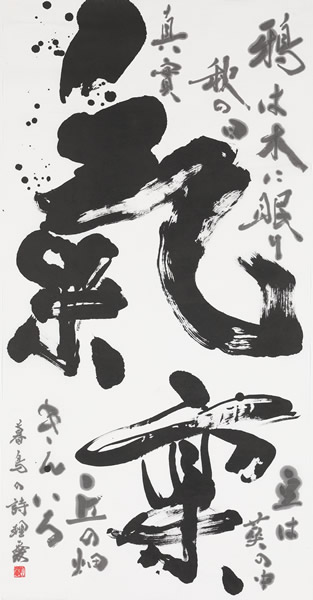 氣
鴉は木に眠り
豆は
莢の中
秋の日
真實
丘の畑
きんいろ
暮鳥の詩